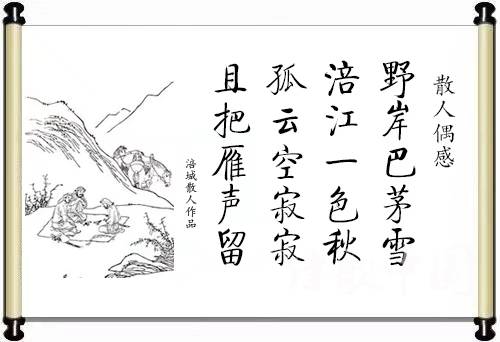 散人偶感
野岸巴茅雪
涪江一色秋
孤云空寂寂
且把雁声留
涪城散人作品